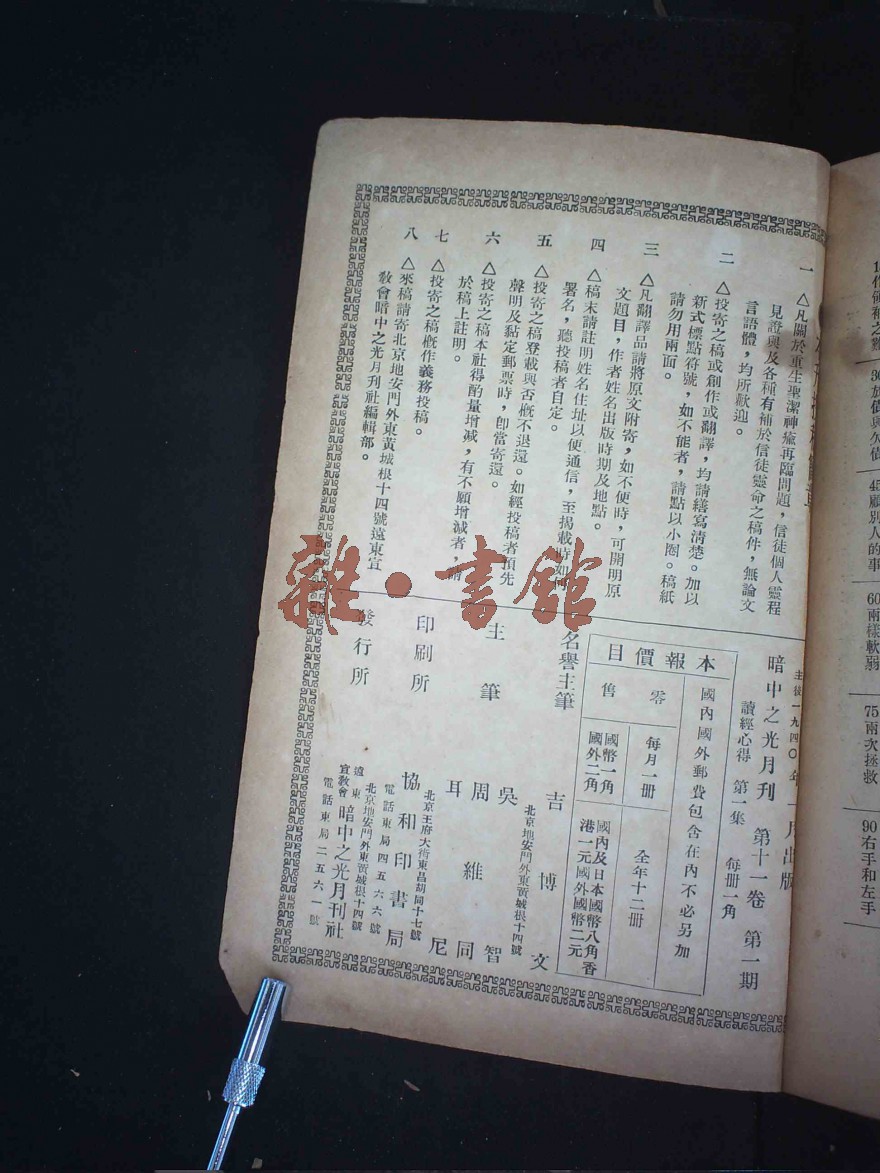 一 △凡關於重生聖潔神癒再臨問題，信徒個人靈程
見證與及各種有補於信徒靈命之稿件，無論文
言語體，均所歡迎。
二 △投寄之稿或創作或翻譯，均請繕寫清楚。加以
新式標點符號，如不能者，請點以小圈。稿紙
請勿用兩面。
三 △凡翻譯品請將原文附寄，如不便時，可開明原
文題目，作者姓名出版時期及地點。
四 △稿末請註明姓名住址以便通信，至揭載時如何
署名，聽投稿者自定。
五 △投寄之稿登載與否概不退還。如經投稿者預先
聲明及黏定郵票時，卽當寄還。
六 △投寄之稿本社得酌量增減，有不願增減者，請
於稿上註明。
七 △投寄之稿概作義務投稿。
八 △來稿請寄北京地安門外東黃城根十四號遠東宣
敎會暗中之光月刊社編輯部。
主後一九四〇年一月出版
暗中之光月刊 第十一卷 第一期
讀經心得 第一集 每冊一角
本報價目
國內國外郵費包含在內不必另加
零售
每月一冊 全年十二冊
國幣一角 國外二角
國內及日本國幣八角香
港一元國外國幣二元
名譽主筆 吉博文
北京地安門外東黃城根十四號
主筆 吳智
周維同
耳尼
北京王府大街東昌胡同十七號
印刷所 協和印書局
電話東局四五六六號
北京地安門外東黃城根十四號
發行所 遠東宣敎會 暗中之光月刊社
電話東局二五六一號
雜·書館
30
放債與欠債
45
顧別人的事
60
兩樣軟弱
75
兩次拯救
90
右手和左手